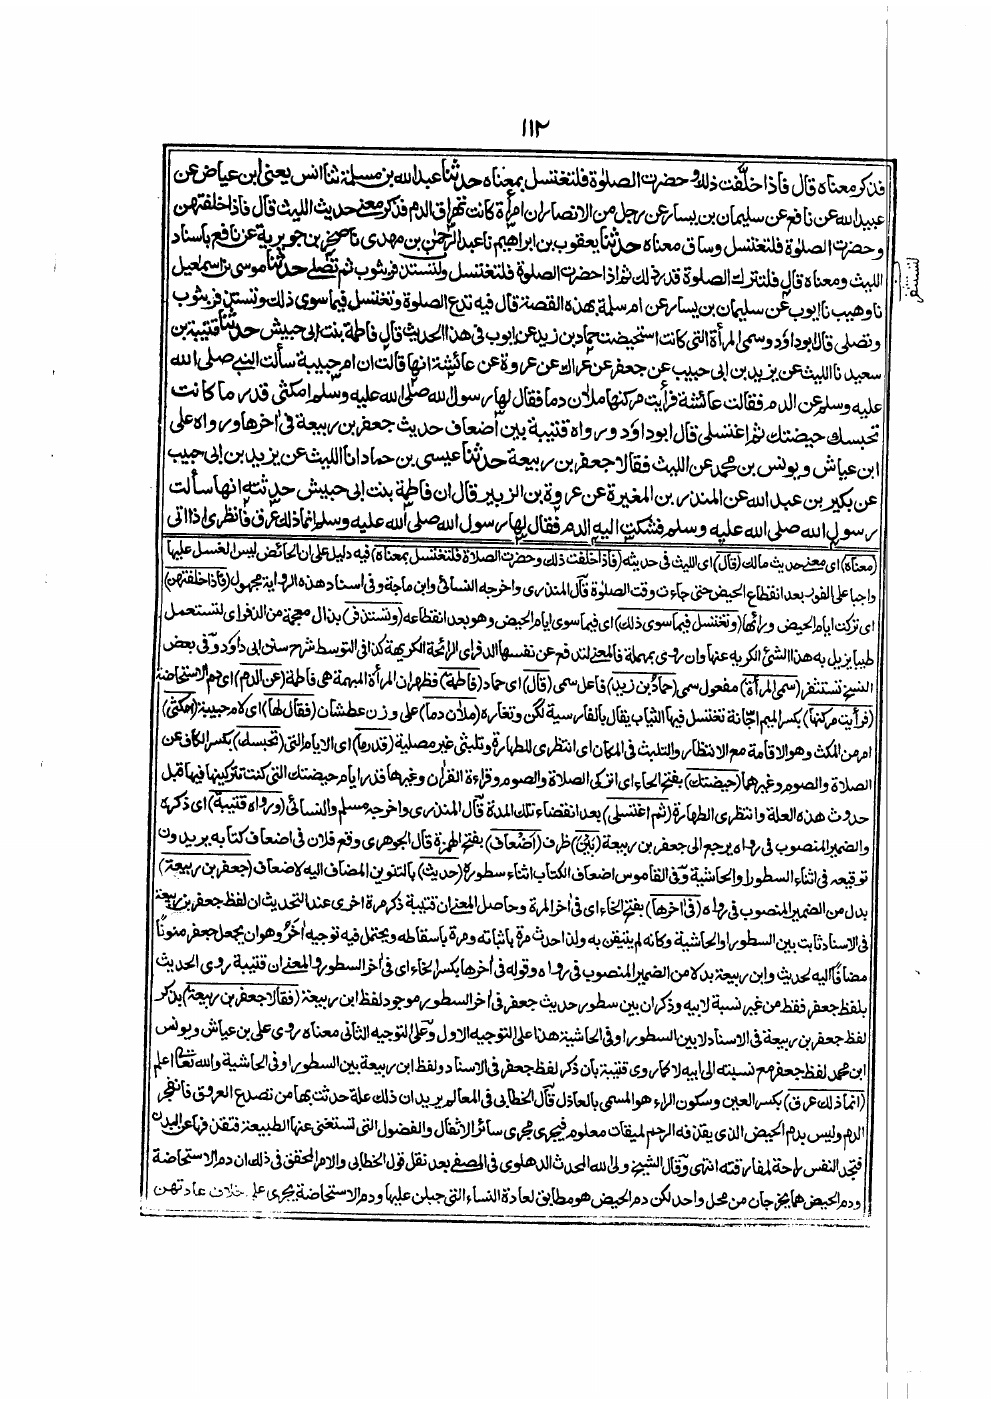 ١١٢
فذكر معناه قال فاذا خلفت ذلك وحضرت الصلوة فلتغتسل بمعناه حدثنا عبد الله بن مسلمة ثنا انس يعنى ابن عياض عن
عبيد الله عن نافع عن سليمان بن يسار عن رجل من الانصار ان امرأة كانت تهراق الدم فذكر معنى حديث الليث قال فاذا خلفتهن
وحضرت الصلوة فلتغتسل وساق معناه حدثنا يعقوب بن ابراهيم نا عبد الرحمن بن مهدى نا صخر بن جويرية عن نافع باسناد
الليث ومعناه قال فلتترك الصلوة قدر ذلك ثم اذا حضرت الصلوة فلتغتسل ولتستذفر بثوب ثم تصلى حدثنا موسى بن اسمعيل
نا وهيب نا ايوب عن سليمان بن يسار عن ام سلمة بهذه القصة قال فيه تدع الصلوة وتغتسل فيما سوى ذلك وتستذفر بثوب
وتصلى قال ابو داود وسمى المرأة التى كانت استحيضت حماد بن زيد عن ايوب فى هذا الحديث قال فاطمة بنت ابى حبيش حدثنا قتيبة بن
سعيد نا الليث عن يزيد بن ابى حبيب عن جعفر عن عراك عن عروة عن عائشة انها قالت ان ام حبيبة سألت النبى صلى الله
عليه وسلم عن الدم فقالت عائشة فرأيت مركنها ملآن دما فقال لها رسول الله صلى الله عليه وسلم امكثى قدر ما كانت
تحبسك حيضتك ثم اغتسلى قال ابو داود ورواه قتيبة بين أضعاف حديث جعفر بن ربيعة فى اخرها ورواه على
ابن عياش ويونس بن محمد عن الليث فقالا جعفر بن ربيعة حدثنا عيسى بن حماد انا الليث عن يزيد بن ابى حبيب
عن بكير بن عبد الله عن المنذر بن المغيرة عن عروة بن الزبير قال ان فاطمة بنت ابى حبيش حدثته انها سألت
رسول الله صلى الله عليه وسلم فشكت اليه الدم فقال لها رسول الله صلى الله عليه وسلم انما ذلك عرق فانظرى اذا اتى
(معناه) اى معنى حديث مالك (قال) اى الليث فى حديثه (فاذا خلفت ذلك وحضرت الصلاة فلتغتسل بمعناه) فيه دليل على ان الحائض ليس الغسل عليها
واجبا على الفور بعد انقطاع الحيض حتى جاءت وقت الصلوة قال المنذرى واخرجه النسائى وابن ماجة وفى اسناد هذه الرواية مجهول (فاذا خلفتهن)
اى تركت ايام الحيض ورائها (وتغتسل فيما سوى ذلك) اى فيما سوى ايام الحيض وهو بعد انقطاعه (وتستذفر) بذال معجمة من الذفر اى لتستعمل
طيبا يزيل به هذا الشئ الكريه عنها وان روى بمهملة فالمعنى لتدفع عن نفسها الدفر اى الرائحة الكريهة كذا فى التوسط شرح سنن ابى داود وفى بعض
النسخ تستثفر (سمى المرأة) مفعول سمى (حماد بن زيد) فاعل سمى (قال) اى حماد (فاطمة) فظهر ان المرأة المبهمة هى فاطمة (عن الدم) اى دم الاستحاضة
(فرأيت مركنها) بكسر الميم اجّانة تغتسل فيها الثياب يقال بالفارسية لگن وتغاره (ملآن دما) على وزن عطشان (فقال لها) اى لام حبيبة (امكثى)
امر من المكث وهو الاقامة مع الانتظار والتلبث فى المكان اى انتظرى للطهارة وتلبثى غير مصلية (قدر ما) اى الايام التى (تحبسك) بكسر الكاف عن
الصلاة والصوم وغيرها (حيضتك) بفتح الحاء اى اتركى الصلاة والصوم وقراءة القرآن وغيرها قدر ايام حيضتك التى كنت تتركينها فيها قبل
حدوث هذه العلة وانتظرى الطهارة (ثم اغتسلى) بعد انقضاء تلك المدة قال المنذرى واخرجه مسلم والنسائى (ورواه قتيبة) اى ذكره
والضمير المنصوب فى رواه يرجع الى جعفر بن ربيعة (بين) ظرف (اضعاف) بفتح الهمزة قال الجوهرى وقع فلان فى اضعاف كتابه يريدون
توقيعه فى اثناء السطور او الحاشية وفى القاموس اضعاف الكتاب اثناء سطوره (حديث) بالتنوين المضاف اليه لاضعاف (جعفر بن ربيعة)
بدل من الضمير المنصوب فى رواه (فى اخرها) بفتح الخاء اى فى اخر المرة وحاصل المعنى ان قتيبة ذكر مرة اخرى عند التحديث ان لفظ جعفر بن ربيعة
فى الاسناد ثابت بين السطور او الحاشية وكانه لم يتيقن به ولذا حدث مرة باثباته ومرة باسقاطه ويحتمل فيه توجيه اخر وهو ان يجعل جعفر منونا
مضافا اليه لحديث وابن ربيعة بدلا من الضمير المنصوب فى رواه وقوله فى أخرها بكسر الخاء اى فى أخر السطور والمعنى ان قتيبة روى الحديث
بلفظ جعفر فقط من غير نسبة لابيه وذكر ان بين سطور حديث جعفر فى اخر السطور موجود لفظ ابن ربيعة (فقالا جعفر بن ربيعة) بذكر
لفظ جعفر بن ربيعة فى الاسناد لا بين السطور او فى الحاشية هذا على التوجيه الاول وعلى التوجيه الثانى معناه روى على بن عياش ويونس
ابن محمد لفظ جعفر مع نسبته الى ابيه لا كما روى قتيبة بان ذكر لفظ جعفر فى الاسناد ولفظ ابن ربيعة بين السطور او فى الحاشية والله تعالى اعلم
(انما ذلك عرق) بكسر العين وسكون الراء هو المسمى بالعاذل قال الخطابى فى المعالم يريد ان ذلك علة حدثت بها من تصدع العروق فانفجر
الدم وليس بدم الحيض الذى يقذفه الرحم لميقات معلوم فيجرى مجرى سائر الاثقال والفضول التى تستغنى عنها الطبيعة فتقذفها عن البدن
فتجد النفس راحة لمفارقته انتهى وقال الشيخ ولى الله المحدث الدهلوى فى المصفى بعد نقل قول الخطابى والامر المحقق فى ذلك ان دم الاستحاضة
ودم الحيض هما يخرجان من محل واحد لكن دم الحيض هو مطابق لعادة النساء التى جبلن عليها ودم الاستحاضة يجرى على خلاف عادتهن